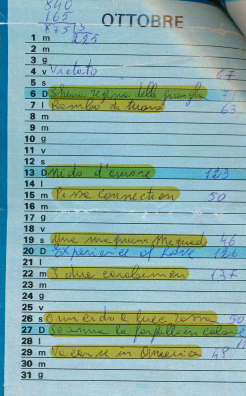 840
165
675
225
OTTOBRE
1 m
2 m
3 g
4 v Vietato 67
5 s
6 D Sheena regina della giungla
7 l Rombo di tuono 63
8 m
9 m
10 g
11 v
12 s
13 D Nido d'amore 123
14 l
15 m Pizza Connection 50
16 m
17 g
18 v
19 s Una magnum 46
20 D Experience of Love 126
21 l
22 m I due carabinieri 137
23 m
24 g
25 v
26 s Omicidio a luce rossa 50
27 D la farfalla
28 l
29 m Vacanze in America 48
30 m
31 g